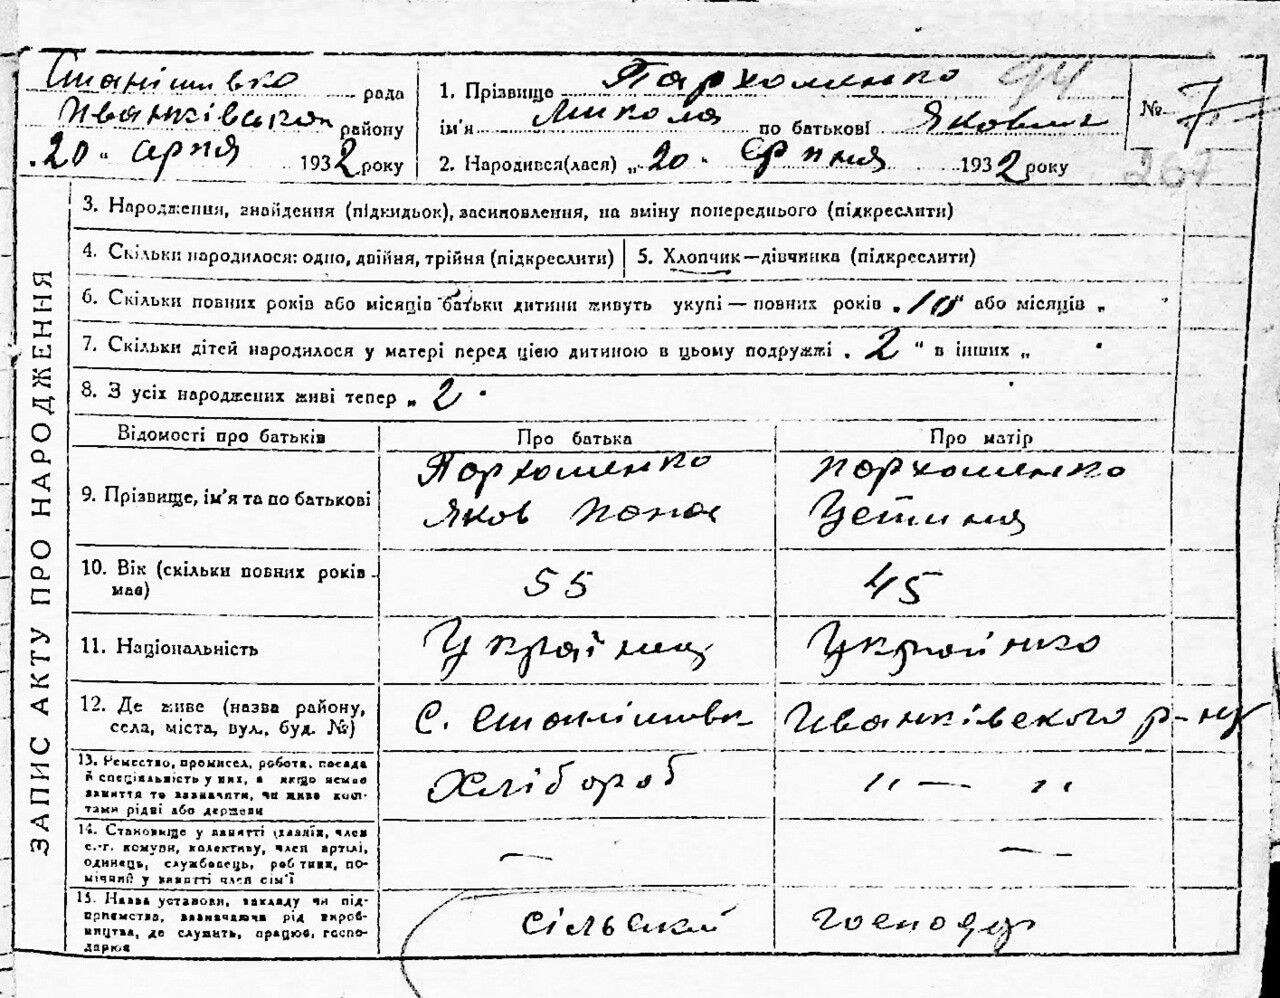 Станішивка рада
Иванківськои району
„20“ серпня 1932 року
1. Прізвище Пархоменко 94
ім'я Микола по батькові Якович
2. Народився(лася) „20“ Серпня 1932 року
№ 7
267
ЗАПИС АКТУ ПРО НАРОДЖЕННЯ
3. Народження, знайдення (підкидьок), засиновлення, на зміну попереднього (підкреслити)
4. Скільки народилося: одно, двійня, трійня (підкреслити) 5. Хлопчик—дівчинка (підкреслити)
6. Скільки повних років або місяців батьки дитини живуть укупі — повних років „10“ або місяців „
7. Скільки дітей народилося у матері перед цією дитиною в цьому подружжі „2“ в інших „
8. З усіх народжених живі тепер „2“
Відомості про батьків Про батька Про матір
9. Прізвище, ім'я та по батькові
Пархоменко
Яков Панас
Пархоменко
Устиния
10. Вік (скільки повних років має) 55 45
11. Національність Українец Українка
12. Де живе (назва району,
села, міста, вул., буд. №)
С. Станішивка Иванківского р-ну
13. Ремество, промисел, робота, посада
й спеціяльність у них, а якщо немає
заняття то зазначити, чи живе кош-
тами рідні або держави
Хлібороб „ — „
14. Становище у занятті (хазяїн, член
с.-г. комуни, колективу, член артілі,
одинець, службовець, робітник, по-
мічний у занятті член сім'ї
— —
15. Назва установи, закладу чи під-
приємства, зазначаючи рід вироб-
ництва, де служить, працює, госпо-
дарює
сільский господар